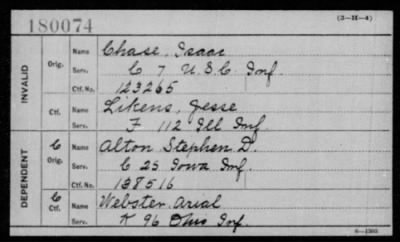 180074
(3—H—4)
INVALID
Orig.
Name Chase, Isaac
Serv. C 7 U.S.C. Inf.
Ctf. No. 123265
Ctf.
Name Likens, Jesse
Serv. F 112 Ill Inf.
DEPENDENT
C Orig.
Name Alton Stephen D.
Serv. C 25 Iowa Inf.
Ctf. No. 138516
C Ctf.
Name Webster, Arial
Serv. K 96 Ohio Inf.